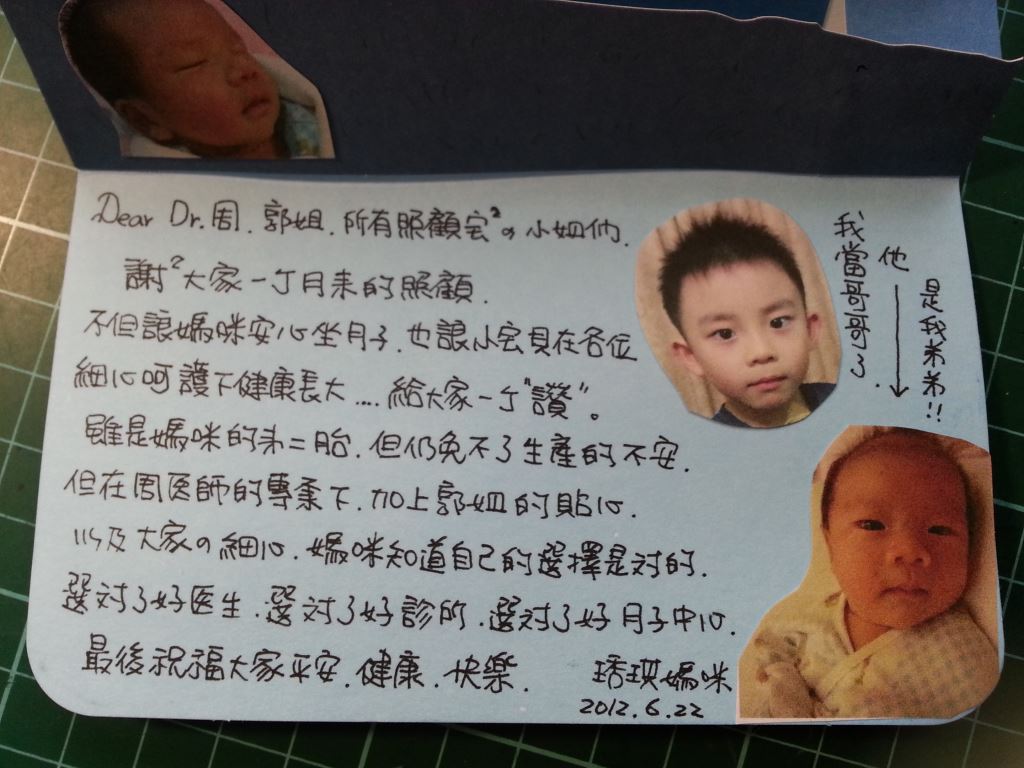 Dear Dr.周. 郭姐. 所有照顧宝²の小姐們.
謝²大家一丁月来的照顧.
不但讓媽咪安心坐月子.也讓小宝貝在各位
細心呵護下健康長大....給大家一丁"讚"。
雖是媽咪的第二胎.但仍免不了生產的不安.
但在周医師的專業下.加上郭姐的貼心.
以及大家の細心.媽咪知道自己的選擇是对的.
選对了好医生.選对了好診所.選对了好月子中心.
最後祝福大家平安.健康.快樂.
琇琪媽咪
2012.6.22
我當哥哥了.
他
是我弟弟!!